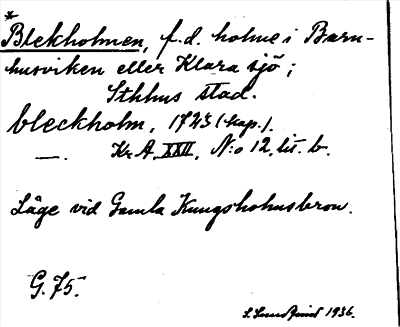 *
Blekholmen, f.d. holme i Barn-
husviken eller Klara sjö;
Sthlms stad.
bleckholm, 1723 (kap.).
—. Kr. A. XXII, N:o 12, lit. b.
Läge vid Gamla Kungsholmsbron.
G. 75.
1936.